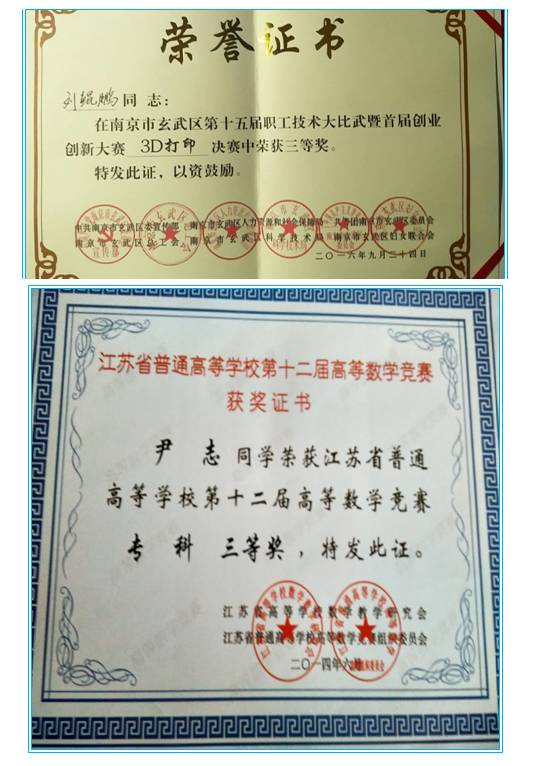 荣誉证书
刘鲲鹏同志：
在南京市玄武区第十五届职工技术大比武暨首届创业
创新大赛 3D打印 决赛中荣获三等奖。
特发此证，以资鼓励。
中共南京市玄武区委宣传部 南京市玄武区人力资源和社会保障局 共青团南京市玄武区委员会
南京市玄武区总工会 南京市玄武区科学技术局 南京市玄武区妇女联合会
二〇一六年九月二十四日
江苏省普通高等学校第十二届高等数学竞赛
获奖证书
尹志 同学荣获江苏省普通
高等学校第十二届高等数学竞赛
专科 三等奖，特发此证。
江苏省高等学校数学教学研究会
江苏省普通高等学校高等数学竞赛组织委员会
二〇一四年六月